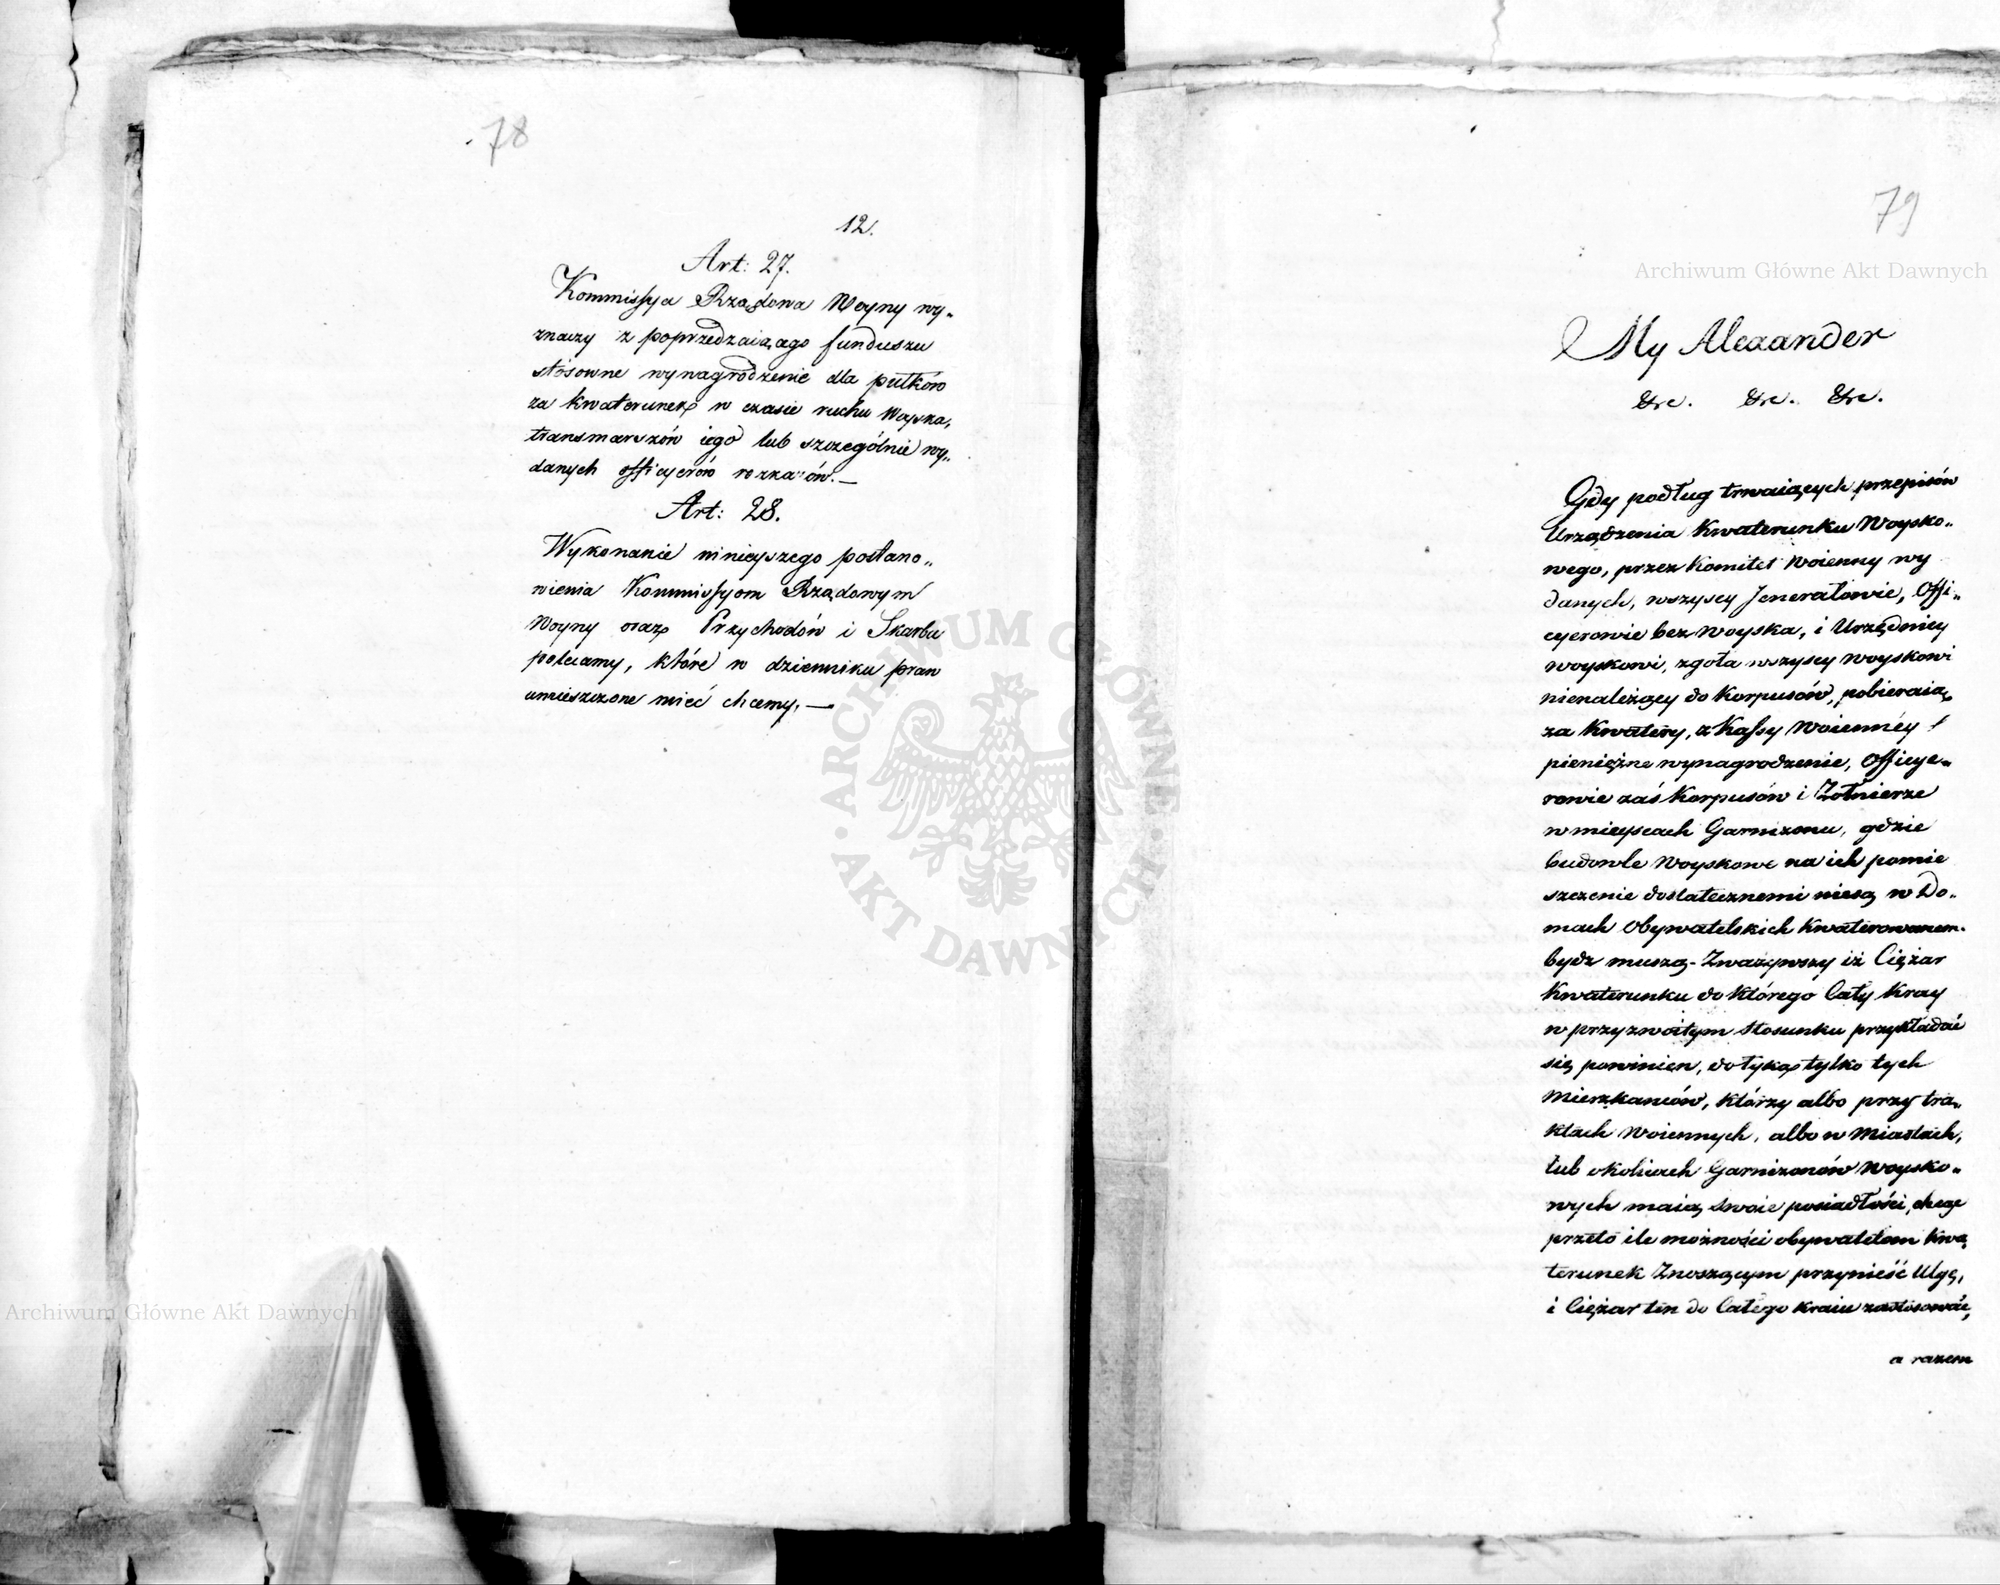 78
12.
Art: 27.
Kommissya Rządowa Woyny wy„
znaczy z poprzedzaiącago funduszu
stosowne wynagrodzenie dla pułków
za kwaterunek w czasie ruchu Woyska,
transmarszów iego lub szczególnie wy„
danych officyerów rozkazów.—
Art: 28.
Wykonanie ninieyszego postano„
wienia Kommissyom Rządowym
Woyny oraz Przychodów i Skarbu
polecamy, które w dzienniku praw
umieszczone mieć chcemy.—
79
My Alexander
&c. &c. &c.
Gdy podług trwaiących przepisów
Urządzenia Kwaterunku Woysko„
wego, przez Komitet Woienny wy
danych, wszyscy Jenerałowie, Offi„
cyerowie bez woyska, i Urzędnicy
woyskowi, zgoła wszyscy woyskowi
nienależący do Korpusów, pobieraią
za Kwatery, z Kassy Woiennéy
pieniężne wynagrodzenie, Officye„
rowie zaś Korpusów i Żołnierze
w mieyscach Garnizonu, gdzie
budowle Woyskowe na ich pomie
szczenie dostatecznemi niesą, w Do„
mach Obywatelskich Kwaterowanem.
bydz muszą - Zważywszy iż Ciężar
Kwaterunku do którego Cały Kray
w przyzwoitym stosunku przykładać
się powinien, dotyka tylko tych
Mieszkańców, którzy albo przy tra„
ktach Woiennych, albo w Miastach,
lub okolicach Garnizonów Woysko„
wych maią swoie posiadłości, chcąc
przeto ile możności obywatelom kwa„
terunek Znoszącym przynieść Ulgę,
i Ciężar ten do Całego kraiu zastosować,
a razem
Archiwum Główne Akt Dawnych
Archiwum Główne Akt Dawnych
ARCHIWUM GŁÓWNE · AKT DAWNYCH ·